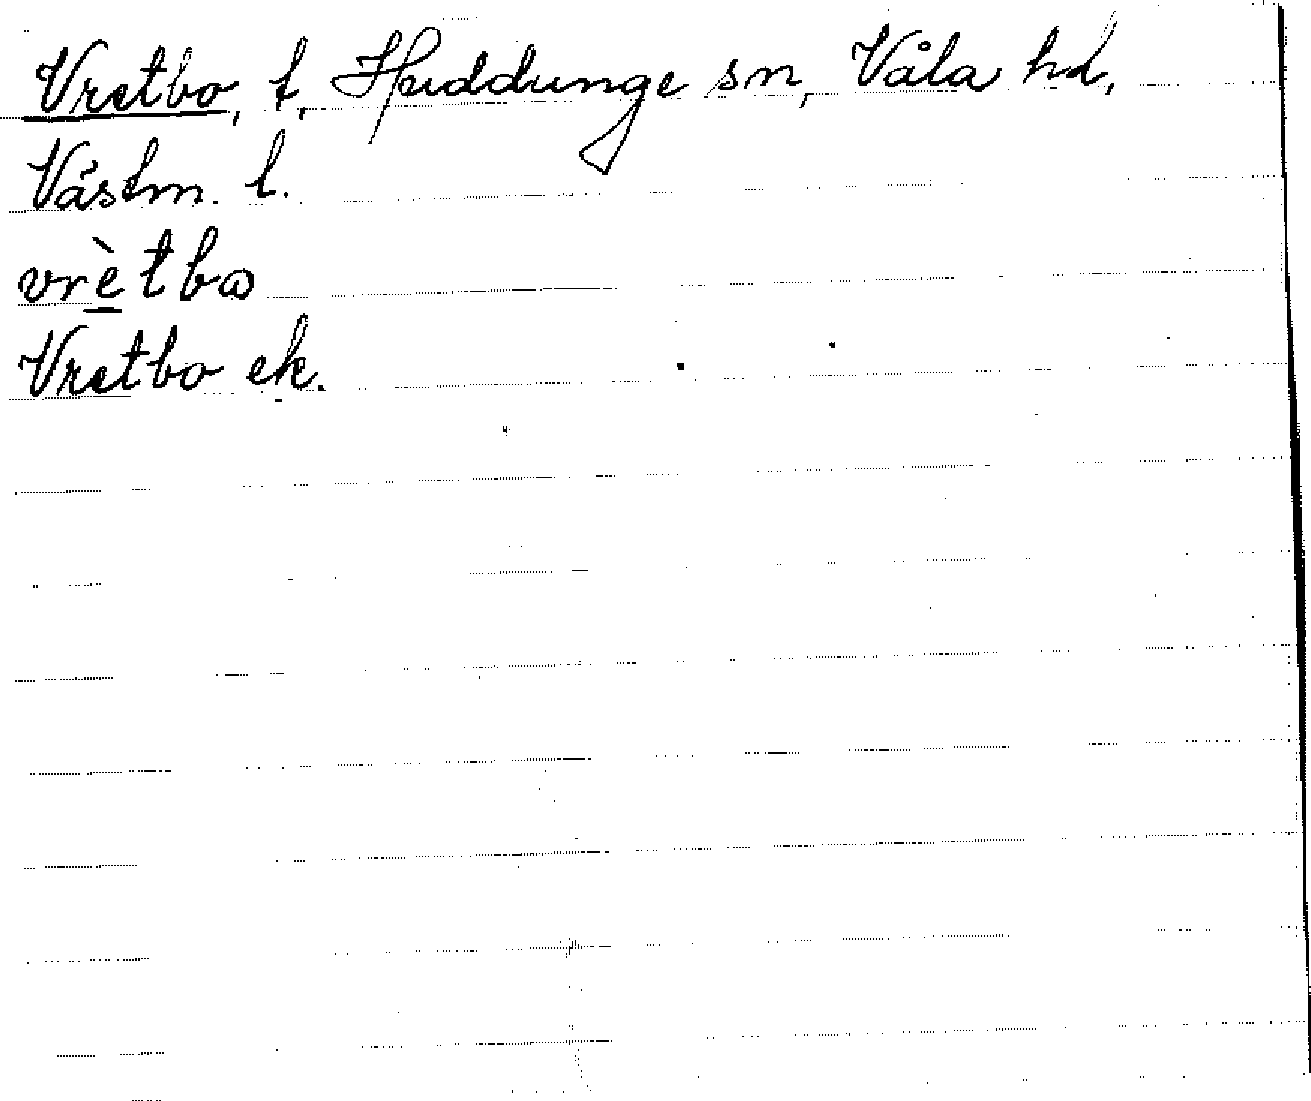 Vretbo, t, Huddunge sn, Våla hd,
Västm. l.
vrètbω
Vretbo ek.